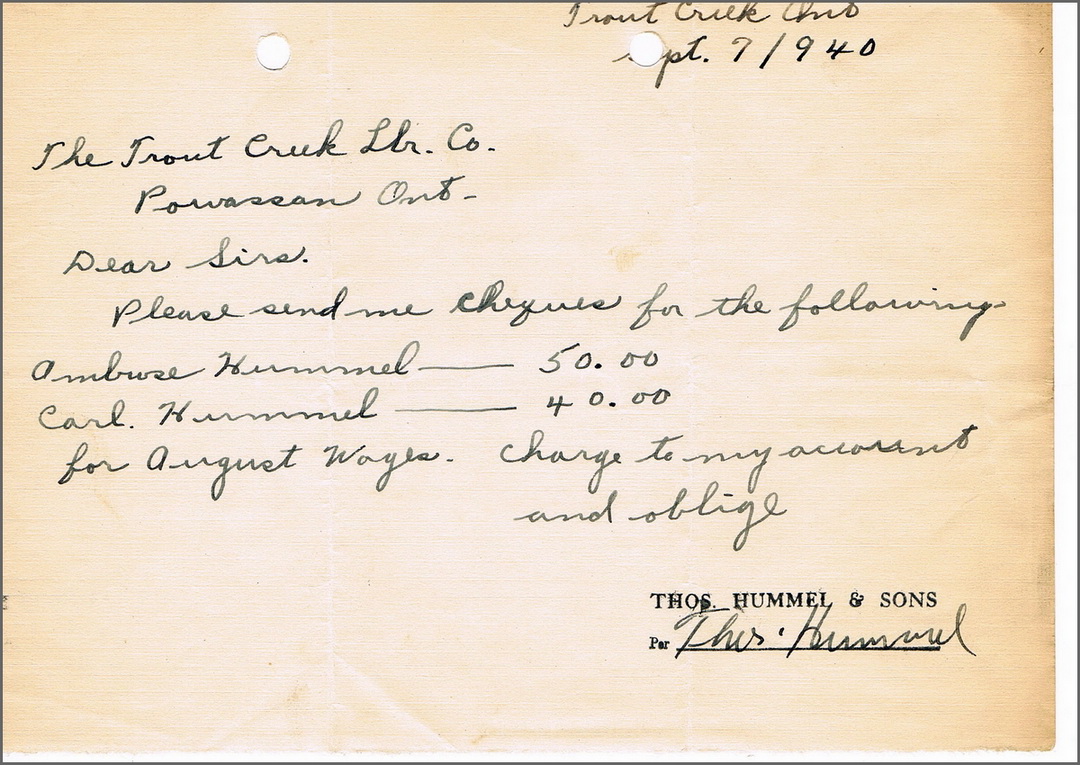 Trout Creek Ont
Sept. 7/940
The Trout Creek Lbr. Co.
Powassan Ont-
Dear Sirs.
Please send me cheques for the following-
Ambrose Hummel — 50.00
Carl. Hummel — 40.00
for August Wages. Charge to my account
and oblige
THOS. HUMMEL & SONS
Per Thos. Hummel